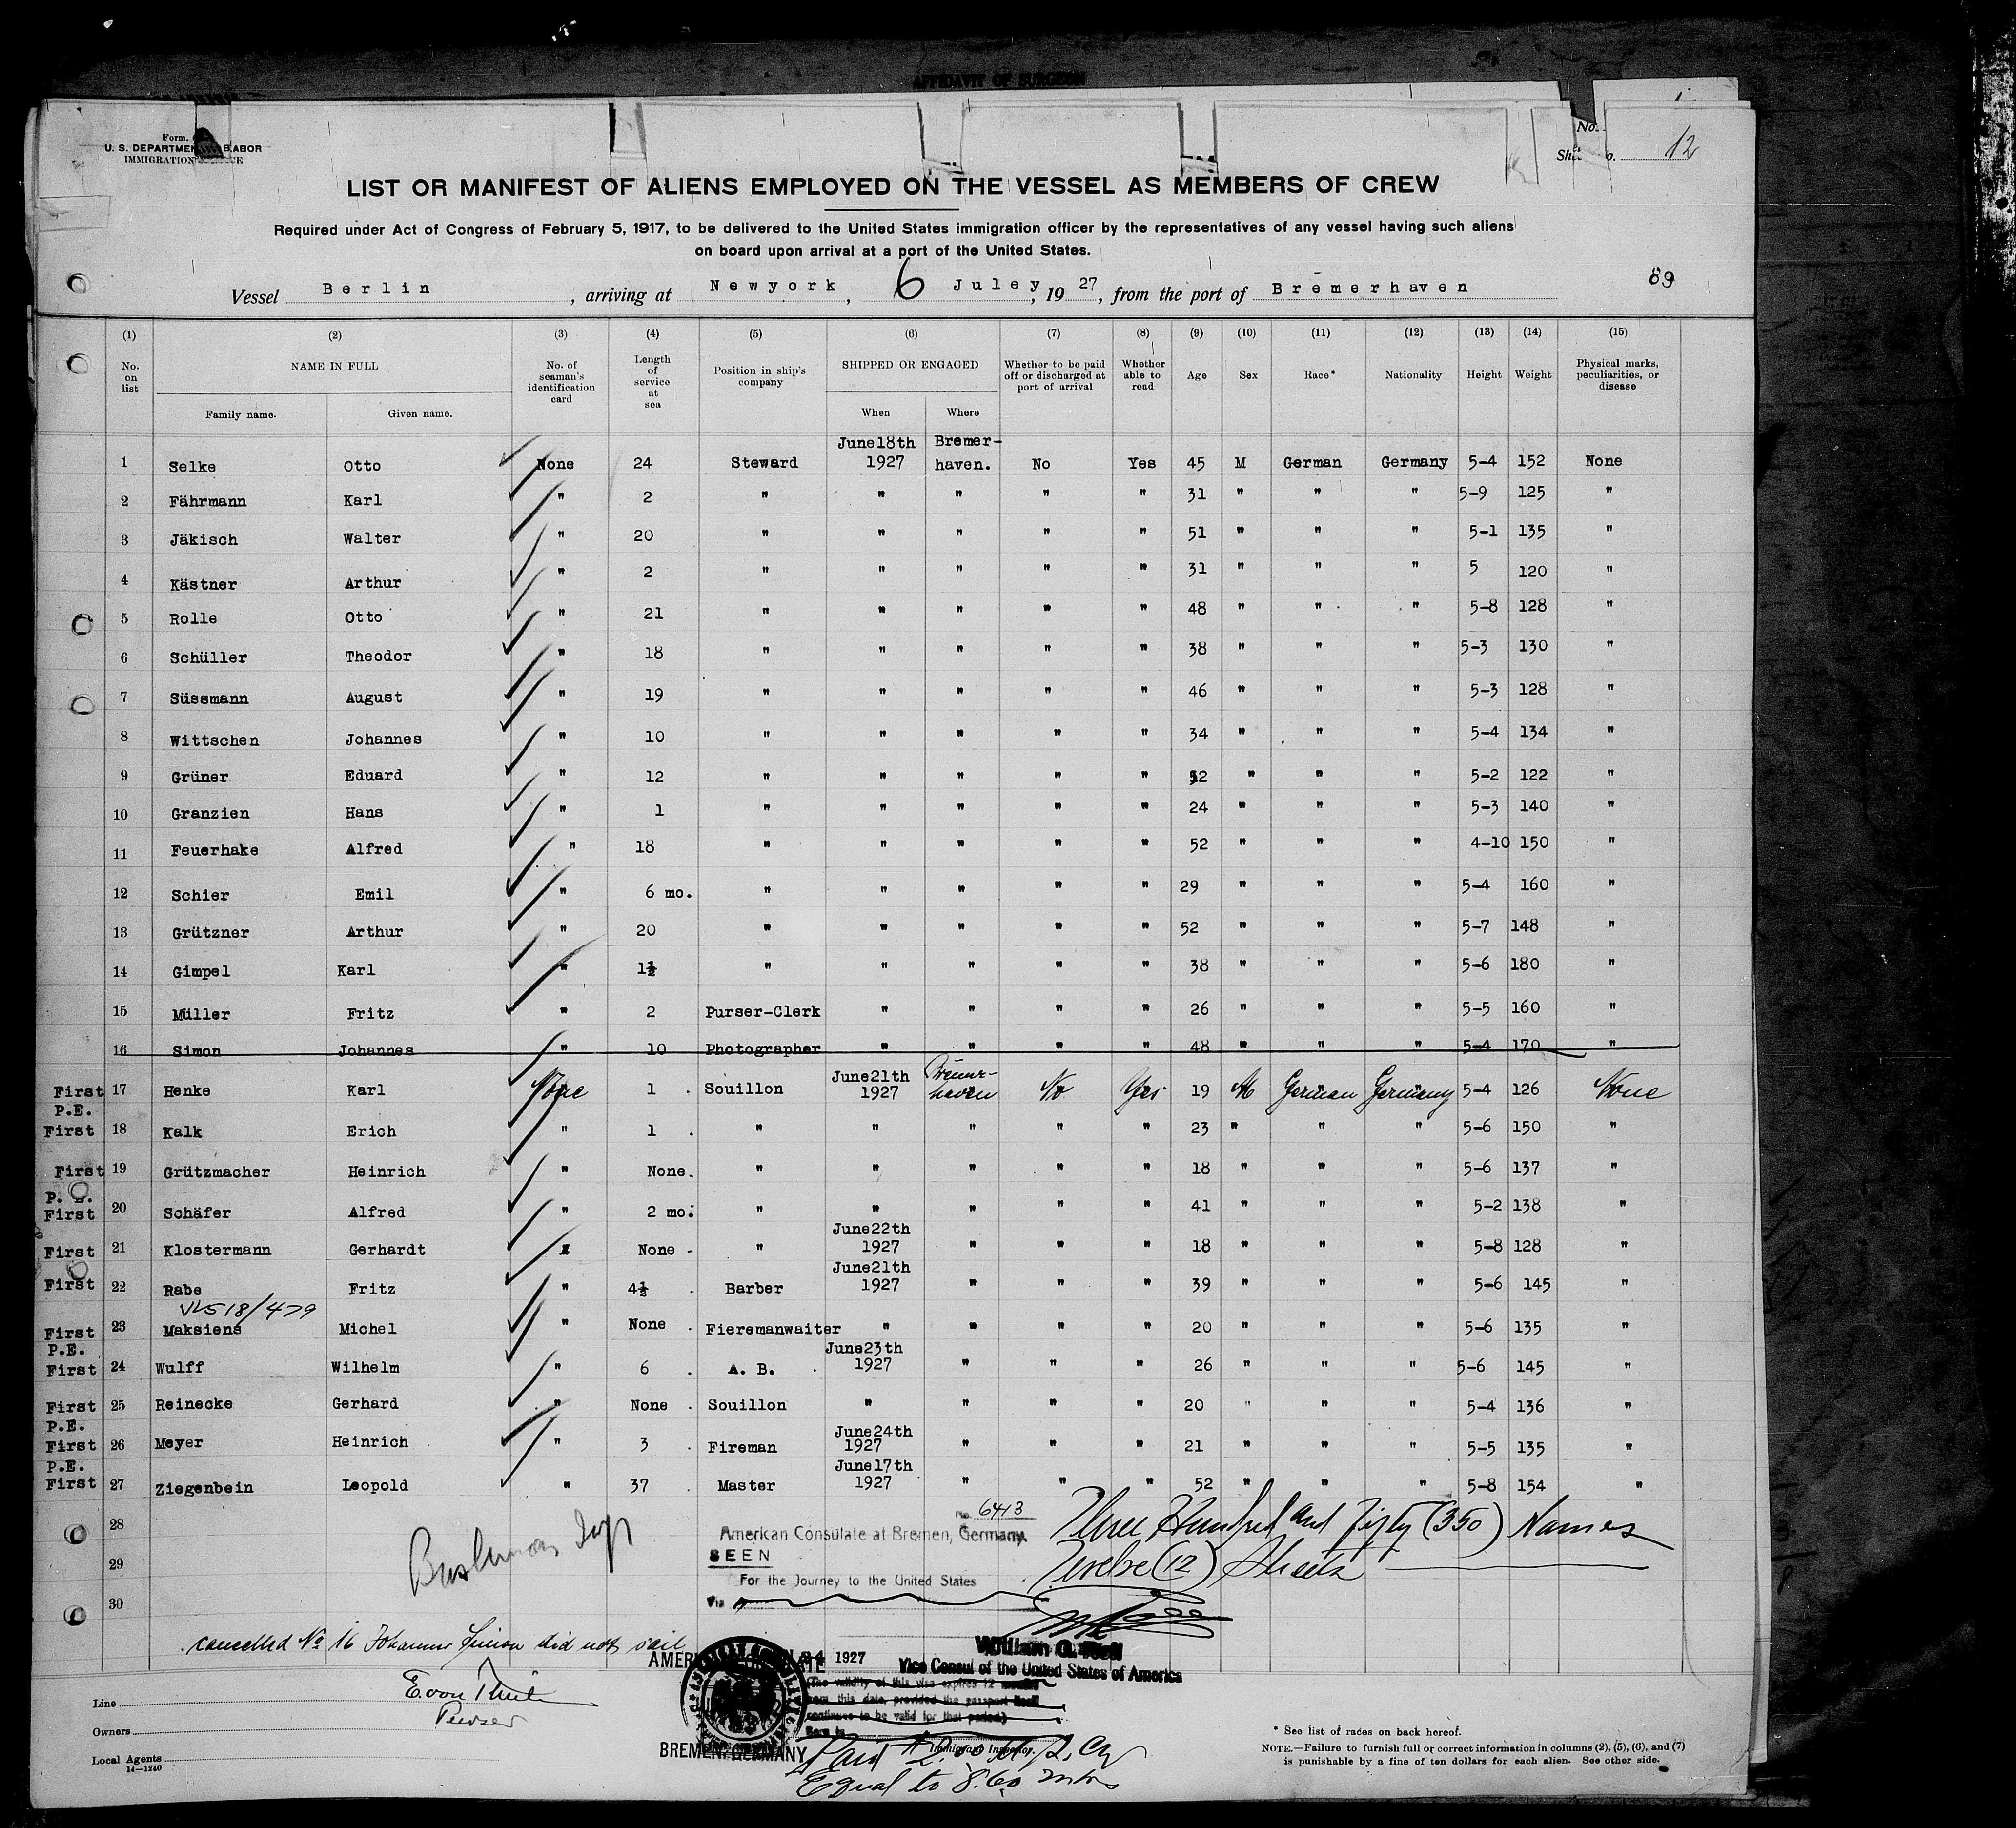 AFFIDAVIT OF SURGEON
Form.
U. S. DEPARTMENT LABOR
IMMIGRATION
No.
Sheet No. 12
LIST OR MANIFEST OF ALIENS EMPLOYED ON THE VESSEL AS MEMBERS OF CREW
Required under Act of Congress of February 5, 1917, to be delivered to the United States immigration officer by the representatives of any vessel having such aliens
on board upon arrival at a port of the United States.
89
Vessel Berlin, arriving at Newyork, 6 Juley, 1927, from the port of Bremerhaven
(1) (2) (3) (4) (5) (6) (7) (8) (9) (10) (11) (12) (13) (14) (15)
No. on list | NAME IN FULL | No. of seaman's identification card | Length of service at sea | Position in ship's company | SHIPPED OR ENGAGED | Whether to be paid off or discharged at port of arrival | Whether able to read | Age | Sex | Race* | Nationality | Height | Weight | Physical marks, peculiarities, or disease
Family name. Given name. When Where
1 Selke Otto None 24 Steward June18th 1927 Bremer-haven. No Yes 45 M German Germany 5-4 152 None
2 Fährmann Karl " 2 " " " " " 31 " " " 5-9 125 "
3 Jäkisch Walter " 20 " " " " " 51 " " " 5-1 135 "
4 Kästner Arthur " 2 " " " " " 31 " " " 5 120 "
5 Rolle Otto " 21 " " " " " 48 " " " 5-8 128 "
6 Schüller Theodor " 18 " " " " " 38 " " " 5-3 130 "
7 Süssmann August " 19 " " " " " 46 " " " 5-3 128 "
8 Wittschen Johannes " 10 " " " " " 34 " " " 5-4 134 "
9 Grüner Eduard " 12 " " " " " 52 " " " 5-2 122 "
10 Granzien Hans " 1 " " " " " 24 " " " 5-3 140 "
11 Feuerhake Alfred " 18 " " " " " 52 " " " 4-10 150 "
12 Schier Emil " 6 mo. " " " " " 29 " " " 5-4 160 "
13 Grützner Arthur " 20 " " " " " 52 " " " 5-7 148 "
14 Gimpel Karl " 1½ " " " " " 38 " " " 5-6 180 "
15 Müller Fritz " 2 Purser-Clerk " " " " 26 " " " 5-5 160 "
16 Simon Johannes " 10 Photographer " " " " 48 " " " 5-4 170 "
First 17 Henke Karl None 1 Souillon June21th 1927 Bremer-haven No Yes 19 M German Germany 5-4 126 None
P.E.
First 18 Kalk Erich " 1 " " " " " 23 " " " 5-6 150 "
First 19 Grützmacher Heinrich " None. " " " " " 18 " " " 5-6 137 "
P. E.
First 20 Schäfer Alfred " 2 mo. " " " " " 41 " " " 5-2 138 "
First 21 Klostermann Gerhardt " None " June22th 1927 " " " 18 " " " 5-8 128 "
First 22 Rabe Fritz " 4½ Barber June21th 1927 " " " 39 " " " 5-6 145 "
First 23 Maksiens Michel " None Fieremanwaiter " " " " 20 " " " 5-6 135 "
P.E.
First 24 Wulff Wilhelm " 6 A. B. June23th 1927 " " " 26 " " " 5-6 145 "
First 25 Reinecke Gerhard " None Souillon " " " " 20 " " " 5-4 136 "
P.E.
First 26 Meyer Heinrich " 3 Fireman June24th 1927 " " " 21 " " " 5-5 135 "
P.E.
First 27 Ziegenbein Leopold " 37 Master June17th 1927 " " " 52 " " " 5-8 154 "
28
29
30
No. 6413
American Consulate at Bremen, Germany.
SEEN
For the Journey to the United States
Via
Three Hundred and Fifty (350) Names
Twelve (12) Sheets
cancelled No 16 Johannes Simon did not sail
Purser
1927
Vice Consul of the United States of America
(The validity of this visa expires 12 months
from this date, provided the passport
continues to be valid for that period.)
BREMEN, GERMANY
Immigrant Inspector.
Equal to 8.60
Line
Owners
Local Agents
14—1240
* See list of races on back hereof.
NOTE.—Failure to furnish full or correct information in columns (2), (5), (6), and (7)
is punishable by a fine of ten dollars for each alien. See other side.